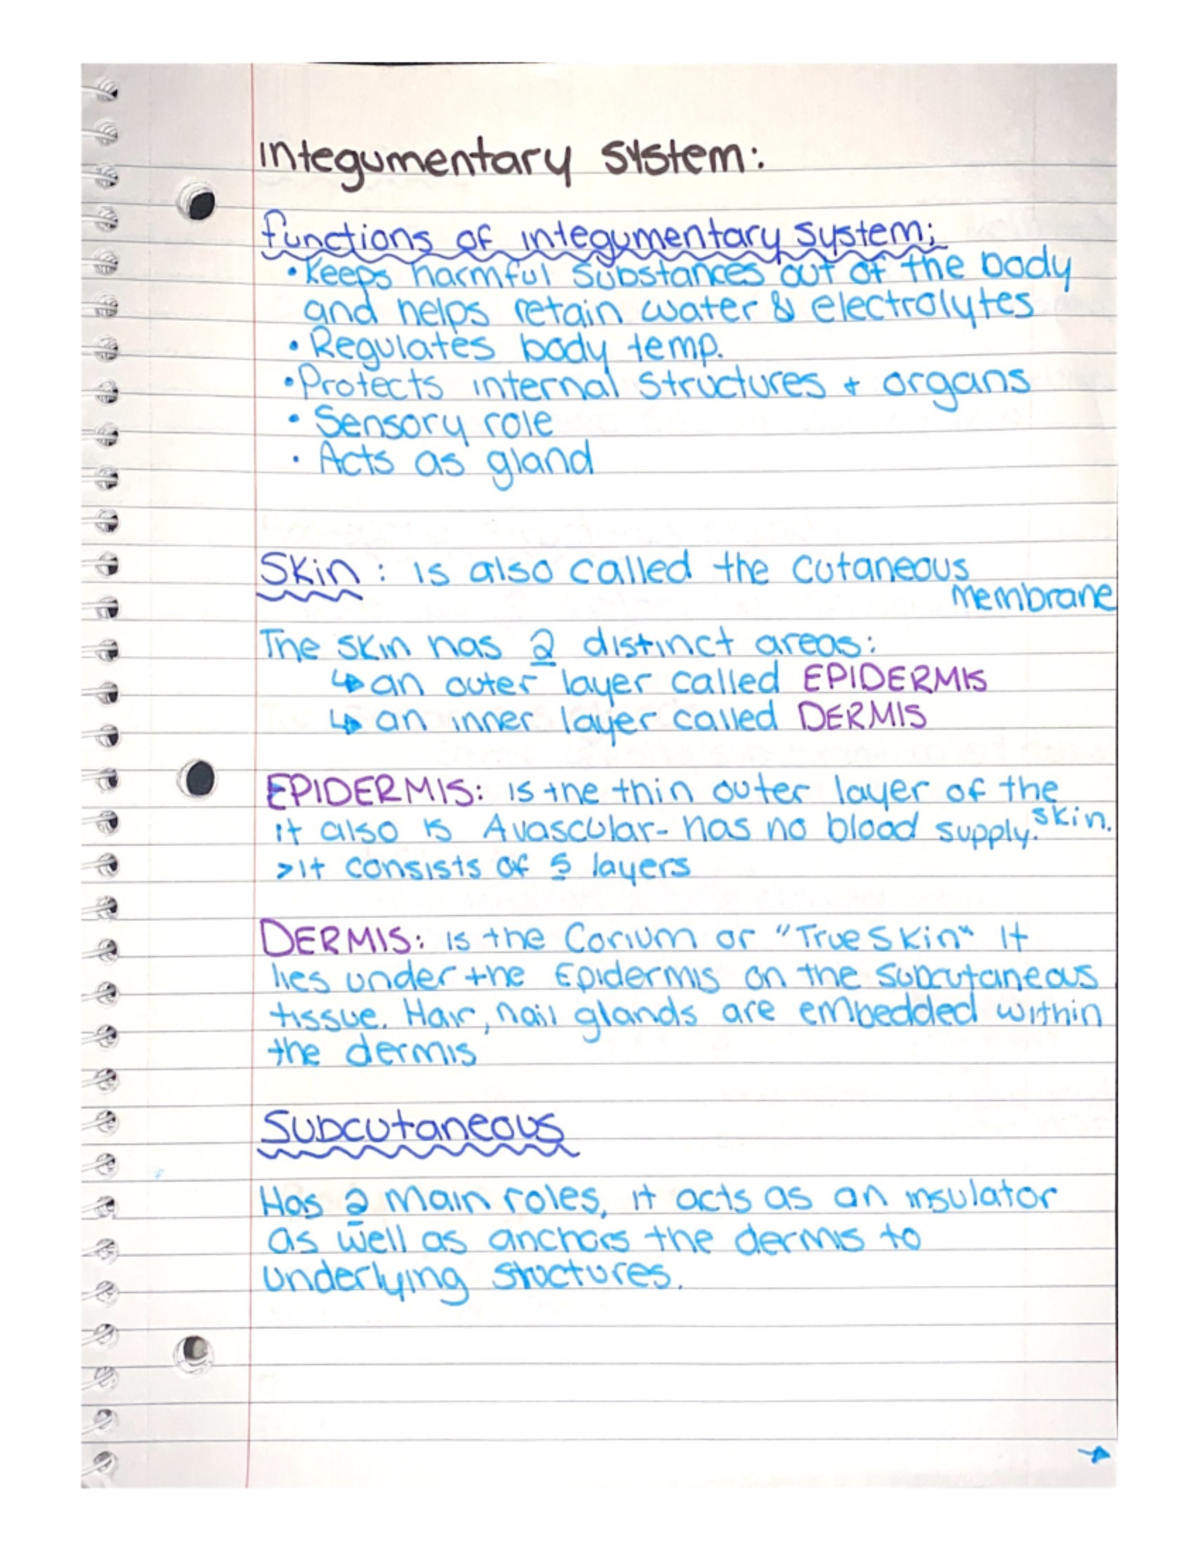 Integumentary System:
functions of integumentary system;
• Keeps harmful substances out of the body
and helps retain water & electrolytes
• Regulates body temp.
• Protects internal structures + organs
• Sensory role
• Acts as gland
Skin : is also called the cutaneous
membrane
The skin has 2 distinct areas:
↳ an outer layer called EPIDERMIS
↳ an inner layer called DERMIS
EPIDERMIS: is the thin outer layer of the
skin.
it also is Avascular- has no blood supply.
>it consists of 5 layers
DERMIS: is the Corium or "True Skin" It
lies under the Epidermis on the subcutaneous
tissue. Hair, nail glands are embedded within
the dermis
Subcutaneous
Has 2 main roles, it acts as an insulator
as well as anchors the dermis to
underlying structures.